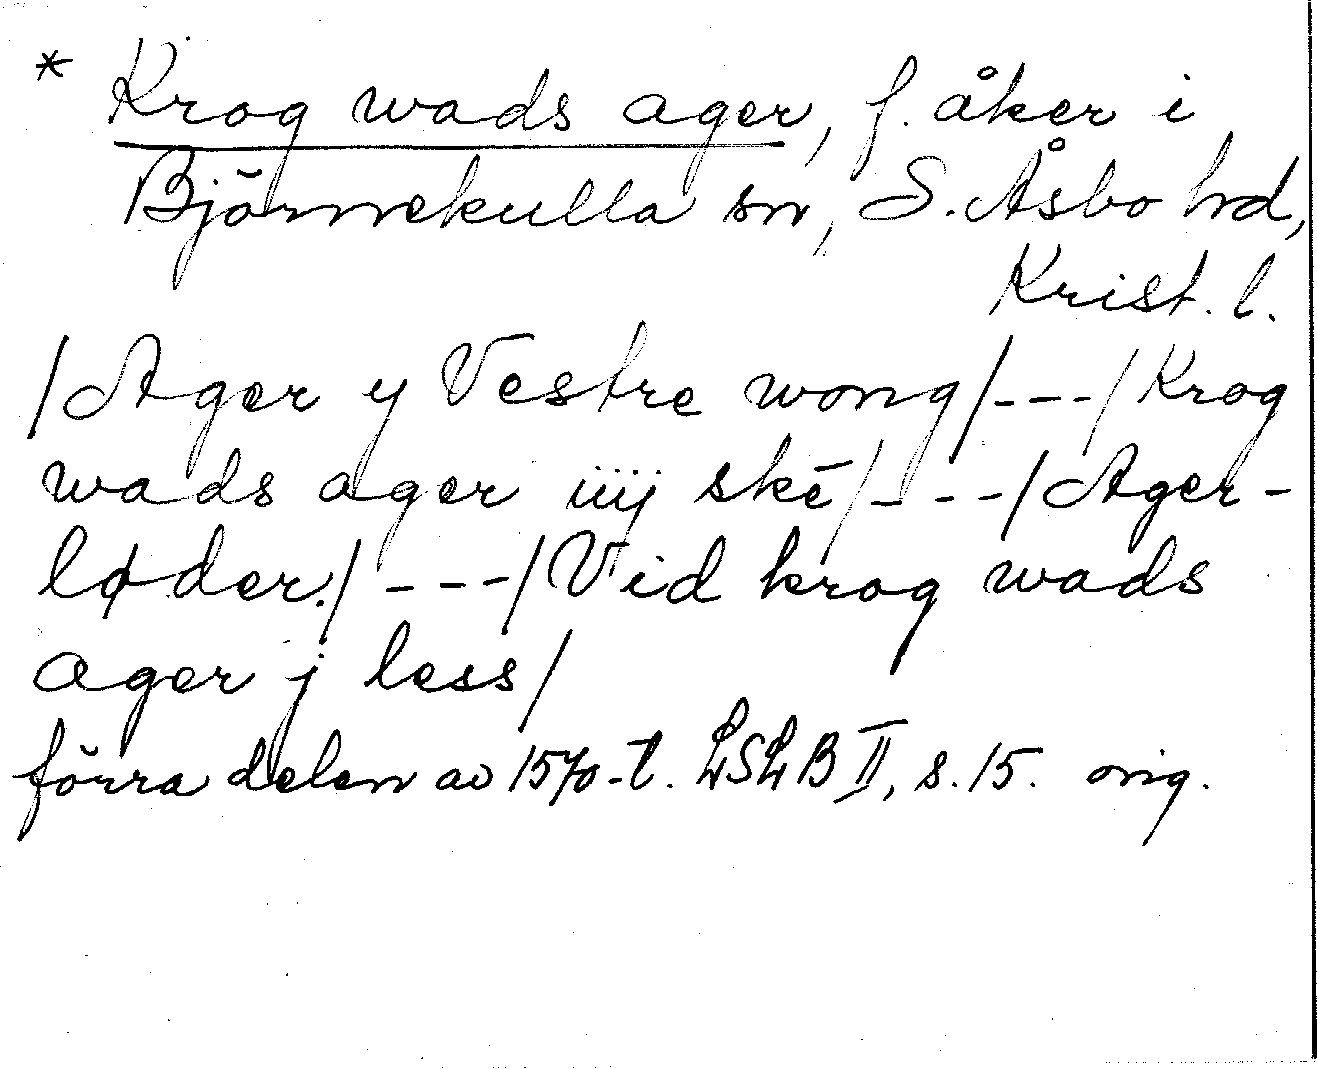 * Krog wads ager, f. åker i
Björnekulla sn, S. Åsbo hd,
Krist. l.
/Ager y Vestre wong/---/Krog
wads ager iiij skē/---/Ager-
løder./---/Vid krog wads
ager j less/
förra delen av 1570-t. LSLB II, s. 15. orig.